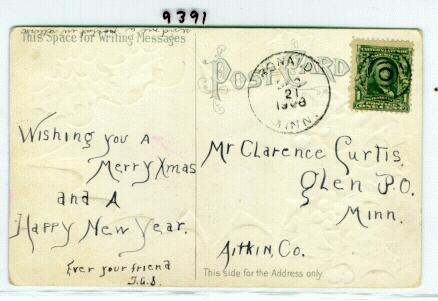 9391
This Space for Writing Messages
POST CARD
RONALD
DEC
21
1908
MINN.
Wishing you A
Merry Xmas
and A
Happy New Year.
Ever your friend
J.G.S.
Mr Clarence Curtis,
Glen P.O.
Minn.
Aitkin, Co.
This side for the Address only.